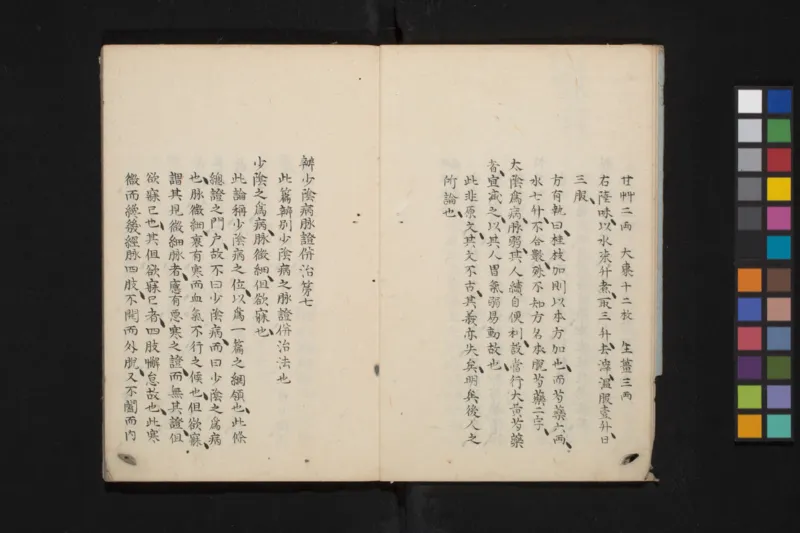 甘艸二两　大棗十二枚　生薑三两
右陸味以水柒升煮取三升去滓温服壹升日
三服
方有執曰桂枝加則以本方加也而芍藥六两
水七升不合數殊不知方名本脫芍藥二字
太陰爲病脉弱其人續自便利設當行大黄芍藥
者宜減之以其人胃氣弱易動故也
此非原文其文不古其義亦失矣明矣後人之
所論也
辨少陰病脉證併治第七
此篇辨別少陰病之脉證併治法也
少陰之爲病脉微細但欲寐也
此論稱少陰病之位以爲一篇之綱領也此條
總證之門户故不曰少陰病而曰少陰之爲病
也脉微細裏有寒而血氣不行之候也但欲寐
謂其見微細脉者應有惡寒之證而無其證但
欲寐已也其但欲寐已者四肢懈怠故也此寒
微而緩發經脉四肢不開而外脫又不閉而内